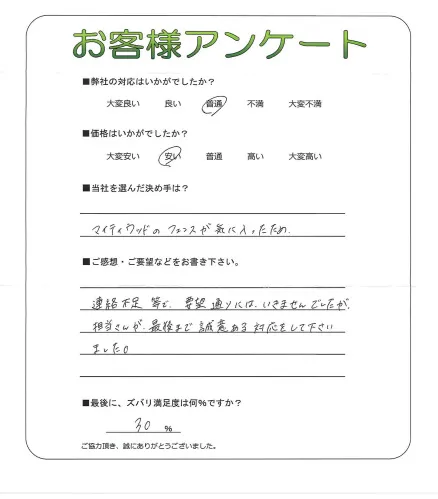 お客様アンケート
■弊社の対応はいかがでしたか?
大変良い 良い 普通 不満 大変不満
■価格はいかがでしたか?
大変安い 安い 普通 高い 大変高い
■当社を選んだ決め手は?
マイティウッドのフェンスが気に入ったため.
■ご感想・ご要望などをお書き下さい。
連絡不足等で、要望通りには、いきませんでしたが、
担当さんが、最後まで誠意ある対応をして下さい
ました。
■最後に、ズバリ満足度は何%ですか?
30 %
ご協力頂き、誠にありがとうございました。